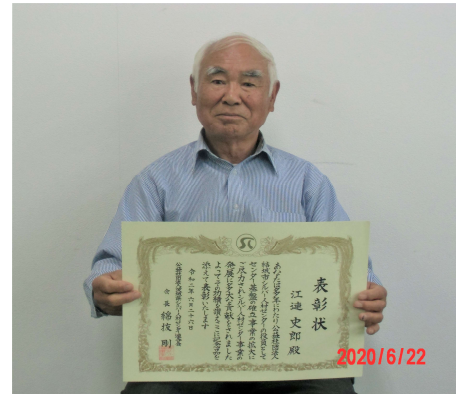 表彰状
江連 史郎 殿
あなたは多年にわたり公益社団法人
結城市シルバー人材センターの役員として
センター基盤の確立事業の拡大に
ご尽力されシルバー人材センター事業の
発展に多大な貢献をされました
よってその功績を讃えここに記念品を
添えて表彰いたします
令和二年六月二十六日
公益社団法人茨城県シルバー人材センター連合会
会長 稲葉 剛
2020/6/22